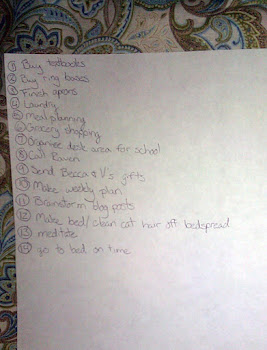 ① Buy textbooks
② Buy ring boxes
③ Finish aprons
④ Laundry
⑤ Meal planning
⑥ Grocery shopping
⑦ Organize desk area for school
⑧ Call Raven
⑨ Send Becca & V's gifts
⑩ Make weekly plan
⑪ Brainstorm blog posts
⑫ Make bed/clean cat hair off bedspread
⑬ meditate
⑭ go to bed on time